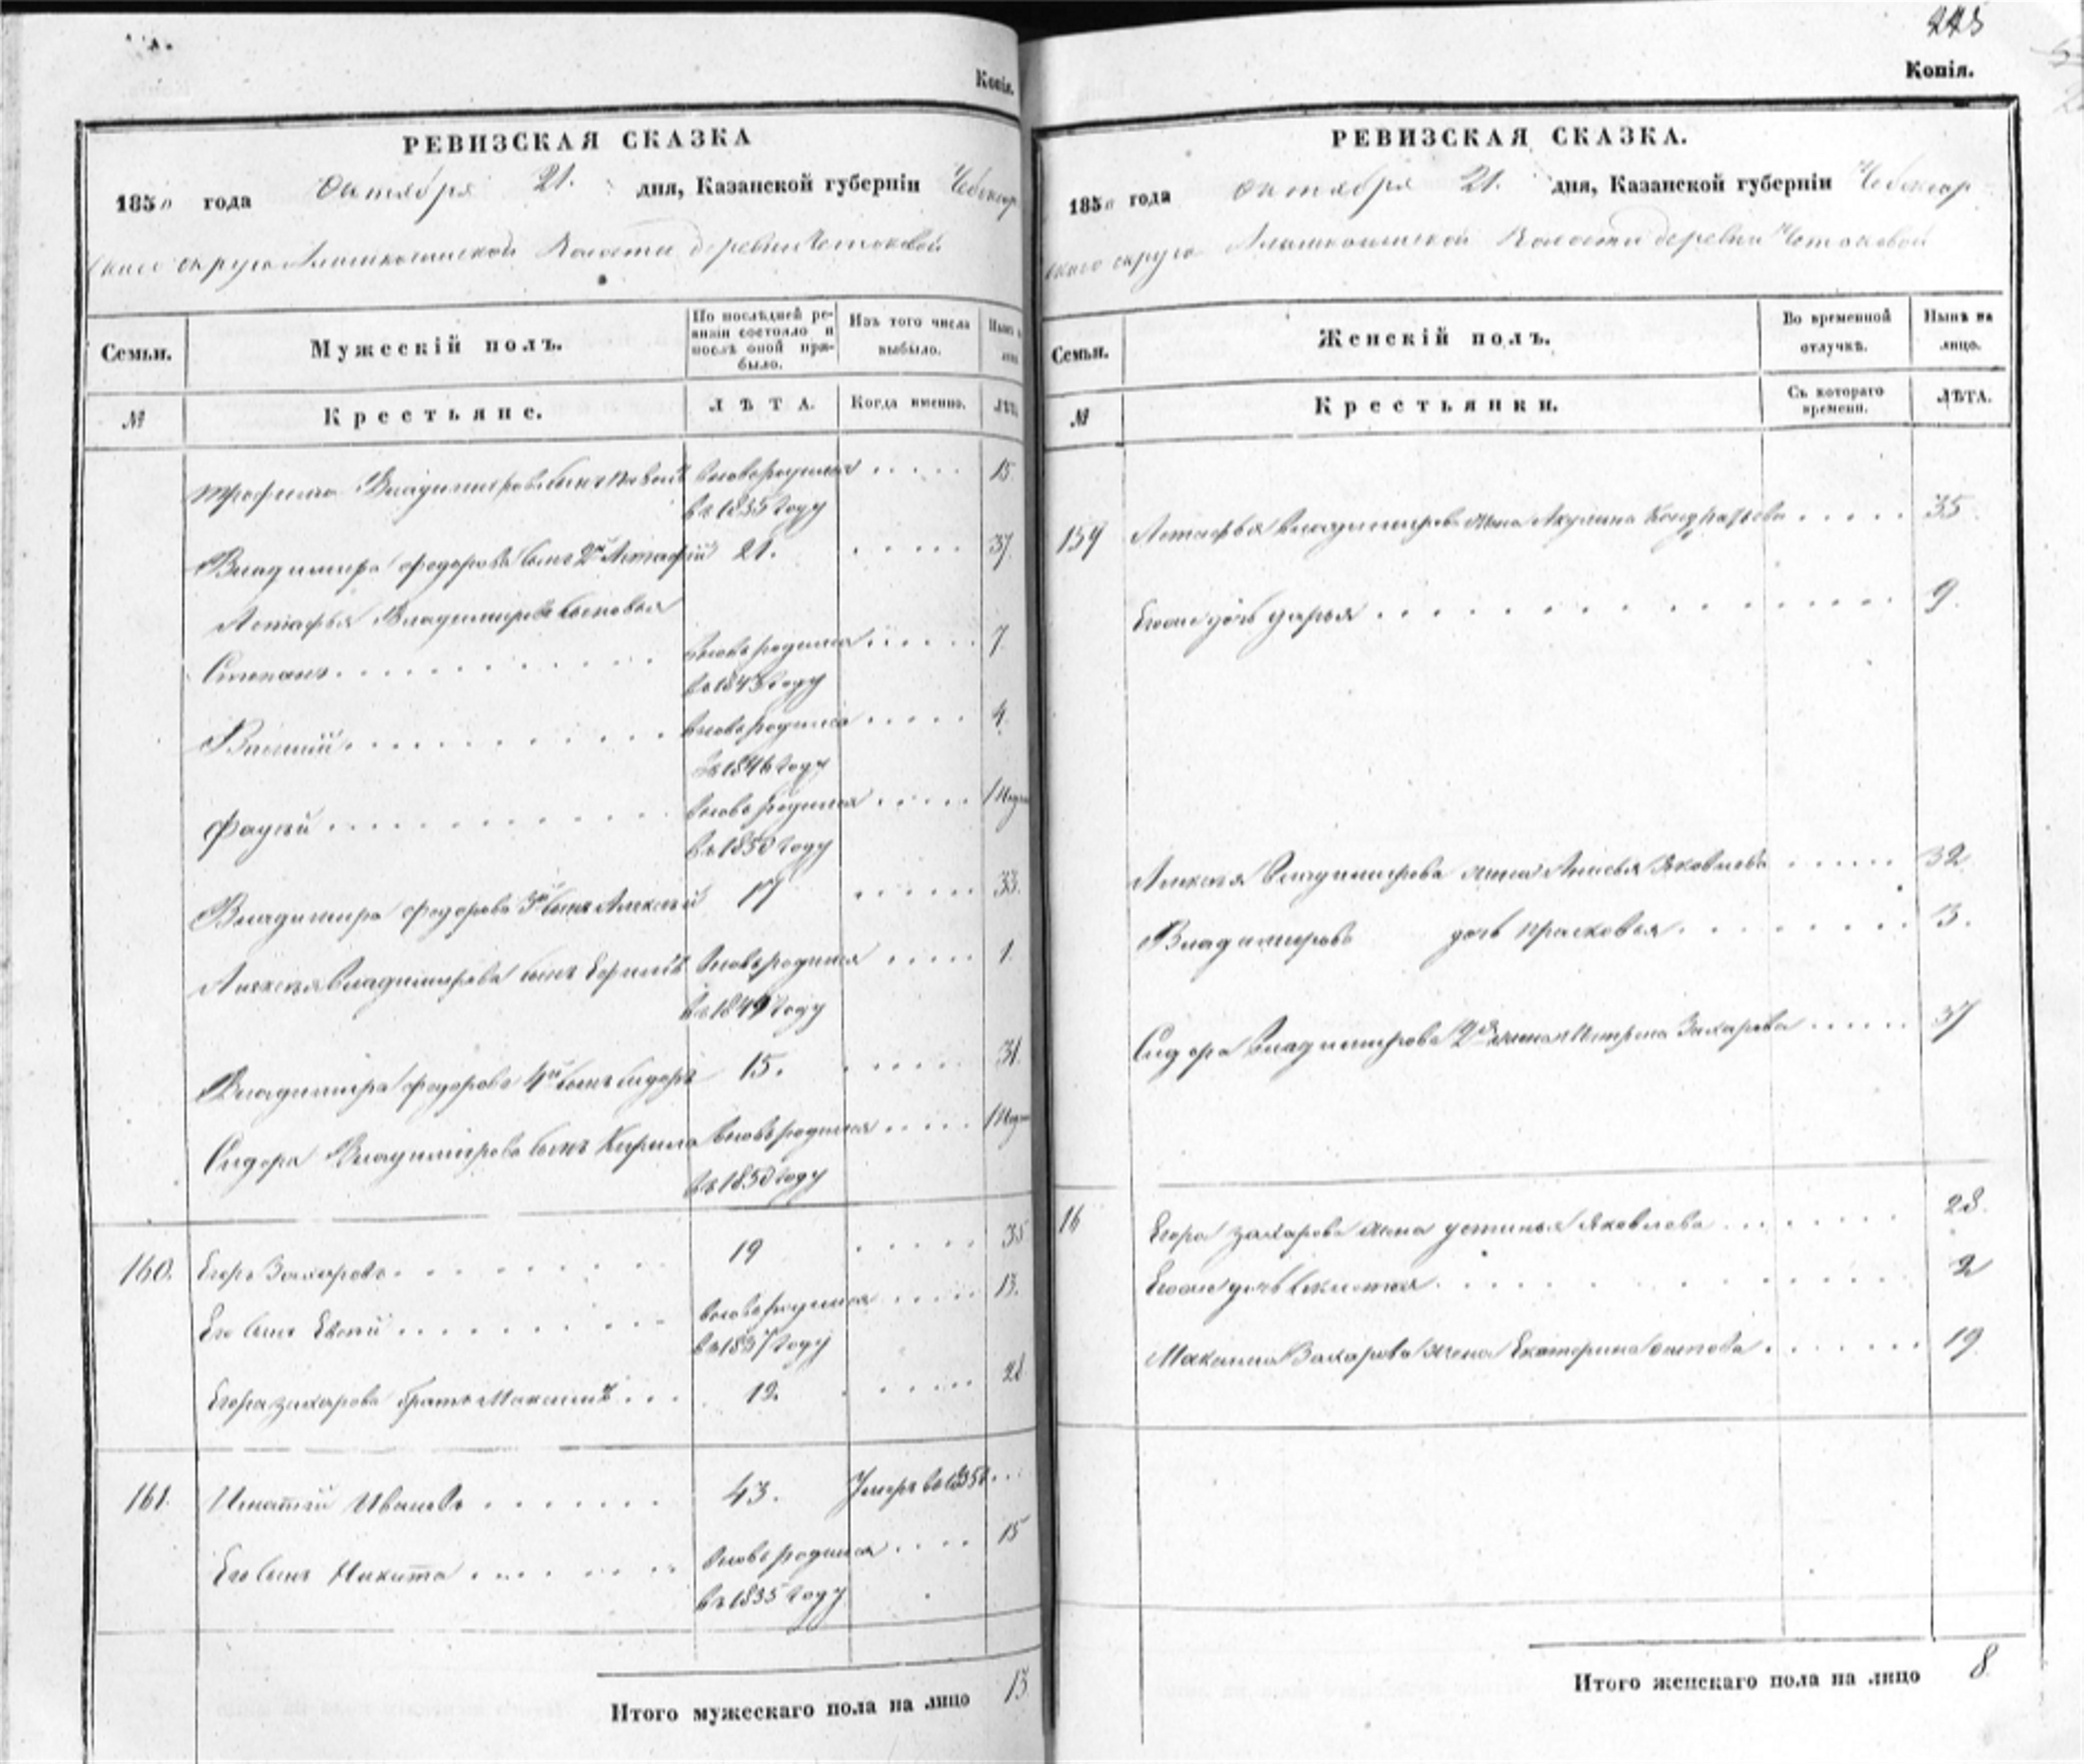 Копія.
РЕВИЗСКАЯ СКАЗКА
1850 года Октября 21. дня, Казанской губерніи Чебоксар
скаго округа Алымкасинской Волости деревни
Семьи.
Мужескій полъ.
По послѣдней ре-
визіи состояло и
послѣ оной при-
было.
Изъ того числа
выбыло.
№
Крестьяне.
ЛѢТА.
Когда именно.
Трофима Владимирова сынъ вновь родился . . . . . 15
въ 1835 году
Владимира Федорова сынъ 2й Астафій 21. . . . . . 37.
Астафья Владимирова сыновья
Степанъ . . . . . . . . . вновь родился . . . . . . 7
въ 1843 году
Василий . . . . . . . . . . вновь родился . . . . . 4.
въ 1846 году
Фадѣй . . . . . . . . . . . вновь родился . . . . . 1
въ 1850 году
Владимира Федорова 3й сынъ Алексѣй 17 . . . . . . 33.
Алексѣя Владимирова сынъ вновь родился . . . . . 1.
въ 1849 году
Владимира Федорова 4й сынъ Сидоръ 15. . . . . . 31.
Сидора Владимирова сынъ Кирила вновь родился . . . . . 1
въ 1850 году
160. Егоръ Захаровъ . . . . . . . . 19 . . . . . 35
Его сынъ . . . . . . . . . вновь родился . . . . . 13.
въ 1837 году
Егора Захарова братъ Максимъ . . . 12. . . . . . 28
161. Игнатій Ивановъ . . . . . . . 43. Умеръ въ 1835 . . .
Его сынъ Никита . . . . . . . . вновь родился . . . . 15
въ 1835 году
Итого мужескаго пола на лицо 13
Копія.
РЕВИЗСКАЯ СКАЗКА.
1850 года Октября 21. дня, Казанской губерніи Чебоксар
скаго округа Алымкасинской Волости деревни
Семьи.
Женскій полъ.
Во временной
отлучкѣ.
Нынѣ на
лицо.
№
Крестьянки.
Съ котораго
времени.
ЛѢТА.
159 Астафья Владимирова жена Акулина Кондратьева . . . . . 35
Егоже дочь Дарья . . . . . . . . . . . . 9.
Алексѣя Владимирова жена Анисья Яковлева . . . . . 32
Владимирова дочь Прасковья . . . . . . . 3.
Сидора Владимирова 2я жена Захарова . . . . . 37
16 Егора Захарова жена Устинья Яковлева . . . . . . . 28.
Егоже дочь . . . . . . . . . . 2
Максима Захарова жена Екатерина . . . . . . . 19
Итого женскаго пола на лицо 8